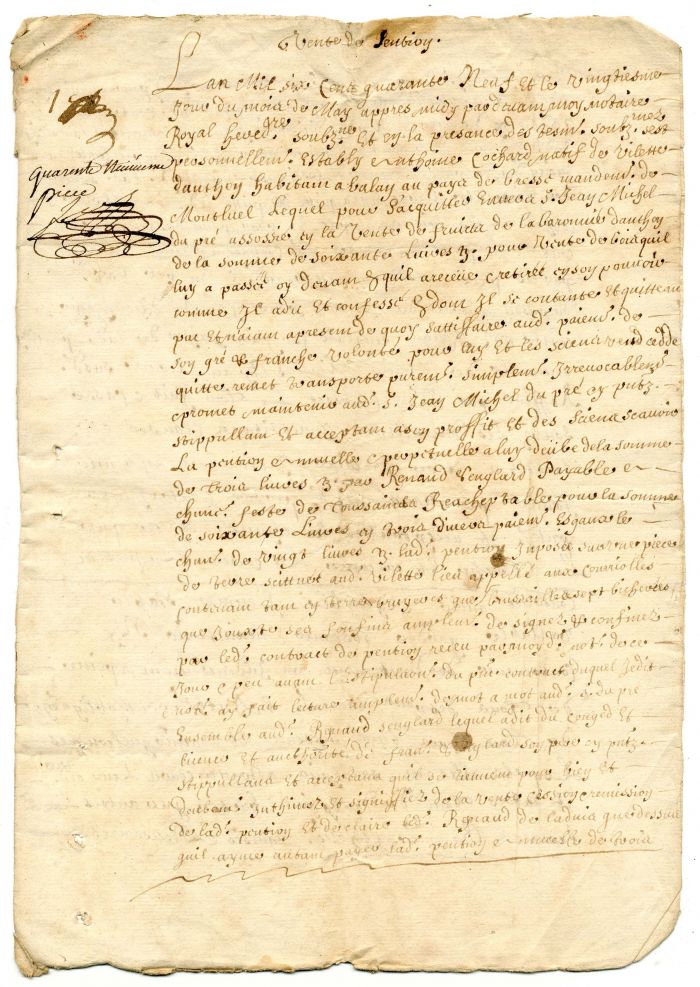 Vente de pention.
1
Lan Mil six Cent quarante Neuf et le vingtiesme
Jour du mois de May appres midy pardevant moy notaire
Royal hered.re soubz.ne Et en la presance des tesm. soubz.mez est
quarente Neufieme
piece
personnellem. Estably Anthoine Cochard natif de vilette
danthon habitant a balan au pays de bresse mandem. de
Montluel Lequel pour sacquitter Envers s. Jean Michel
du pré assossie en la vente de fruictz de la baronnie danthon
de la somme de soixante Livres pour vente de bois quil
luy a passée et quil a receue et retirée en son pouvoir
comme Il a dit Et confessé dont Il se contante Et quitte
par Et naiant a present de quoy sattiffaire aud. paiem. de
son gré & franche volonté pour luy Et les siens vend cedde
quitte remet transporte purem. simplem. Irrevocablem.
et promet maintenir aud. s. Jean Michel du pré cy putz.
stippullant Et acceptant a son proffit Et des siens scavoir
La pention annuelle et perpetuelle a luy deube de la somme
de trois livres par Renaud Senglard Payable a
chanc. feste de toussaincts Reacheptable pour la somme
de soixante Livres en trois divers paiem. Esgaux le
chan. de vingt livres lad. pention Inposée sur une piece
de terre scittuee aud. vilette lieu appellé aux
contenant tant en terre bruyeres que brussailles sept bicherées
que Jouxte ses confins amplem. designez & confinez
par led. contract de pention receu par moyd. not. de ce
Jour et peu avant l'estipulaon du pnt contract duquel Jedit
not. ay fait lecture amplem. de mot a mot aud. s. du pré
Ensemble aud. Renaud Senglard lequel a dit du Conged Et
licence Et aucthorité de fran. Senglard son père cy putz.
stippullans Et acceptans quil se tiennent pour bien Et
deubem. Inthimez Et signiffiez de la vente cession remission
de lad. pention Et declaire led. Renaud de ladvis que dessus
quil ayme autant payer lad. pention annuelle de trois